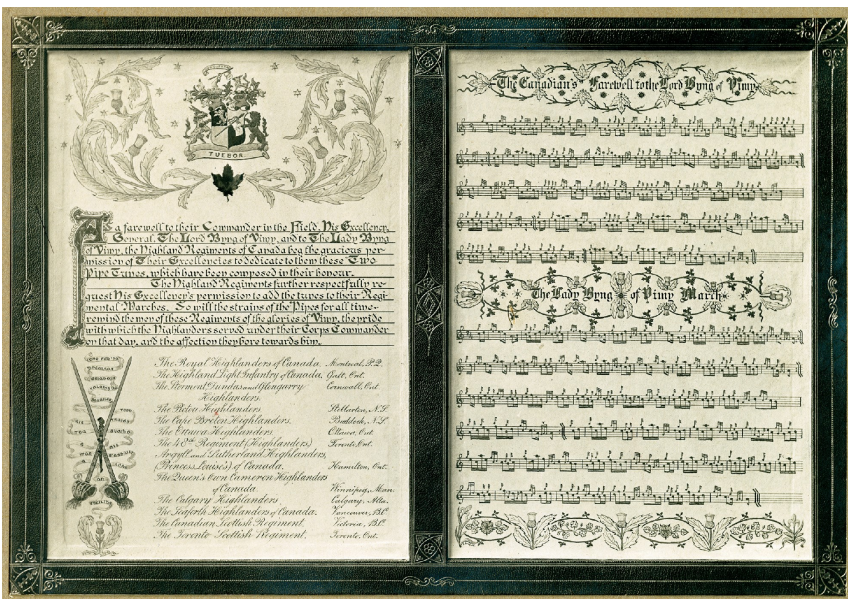 TUEBOR
As a farewell to their Commander in the Field, His Excellency,
General, The Lord Byng of Vimy, and to The Lady Byng
of Vimy, the Highland Regiments of Canada beg the gracious per-
mission of Their Excellencies to dedicate to them these Two
Pipe Tunes, which have been composed in their honour.
The Highland Regiments further respectfully re-
quest His Excellency's permission to add the tunes to their Regi-
mental Marches. So will the strains of the Pipes for all time
remind the men of these Regiments of the glories of Vimy, the pride
with which the Highlanders served under their Corps Commander
on that day, and the affection they bore towards him.
The Royal Highlanders of Canada, Montreal, P.Q.
The Highland Light Infantry of Canada, Galt, Ont.
The Stormont, Dundas and Glengarry Cornwall, Ont.
Highlanders.
The Pictou Highlanders Stellarton, N.S.
The Cape Breton Highlanders, Baddeck, N.S.
The Ottawa Highlanders Ottawa, Ont.
The 48th Regiment (Highlanders) Toronto, Ont.
Argyll and Sutherland Highlanders,
(Princess Louise's) of Canada. Hamilton, Ont.
The Queen's Own Cameron Highlanders
of Canada Winnipeg, Man.
The Calgary Highlanders Calgary, Alta.
The Seaforth Highlanders of Canada. Vancouver, B.C.
The Canadian Scottish Regiment, Victoria, B.C.
The Toronto Scottish Regiment, Toronto, Ont.
The Canadian's Farewell to the Lord Byng of Vimy
The Lady Byng of Vimy March